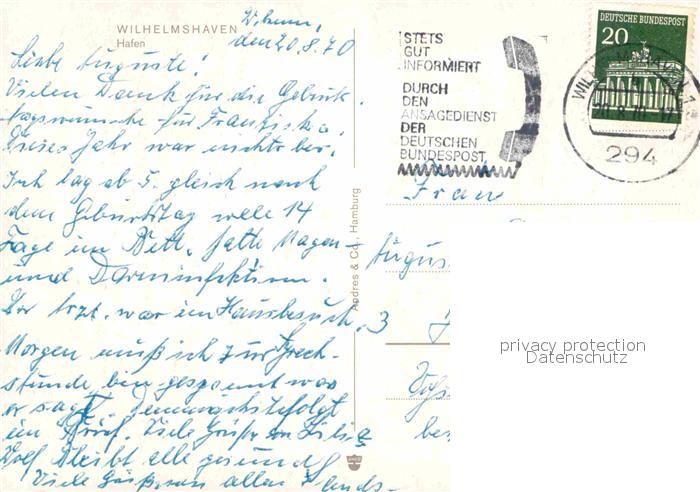 WILHELMSHAVEN
Hafen
den 20.8.70
Liebe Auguste!
Vielen Dank für die Geburts-
tagswünsche für Franziska.
Dieses Jahr war nichts bes.
Ich lag ab 5. gleich nach
dem Geburtstag wele 14
Tage im Bett. hatte Magen-
und Darminfektion.
Der Arzt war im Hausbesuch. 3
Morgen muß ich zur Sprech-
stunde bin gespannt was
er sagt. Demnächst folgt
ein Brief. Viele Grüße von
Wolf Bleibt alle gesund
Viele Grüße von allen
Andres & Co., Hamburg
STETS
GUT
INFORMIERT
DURCH
DEN
ANSAGEDIENST
DER
DEUTSCHEN
BUNDESPOST
DEUTSCHE BUNDESPOST
20
294
Frau
privacy protection
Datenschutz